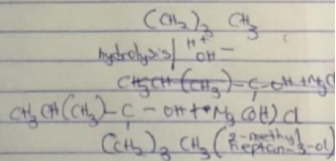 (CH₂)₃ CH₃
hydrolysis | H⁺ OH⁻
CH₃CH(CH₃)-C-OH+MgCl
CH₃CH(CH₃)-C-OH+Mg(OH)Cl
(CH₂)₃ CH₃ (2-methyl heptan-3-ol)